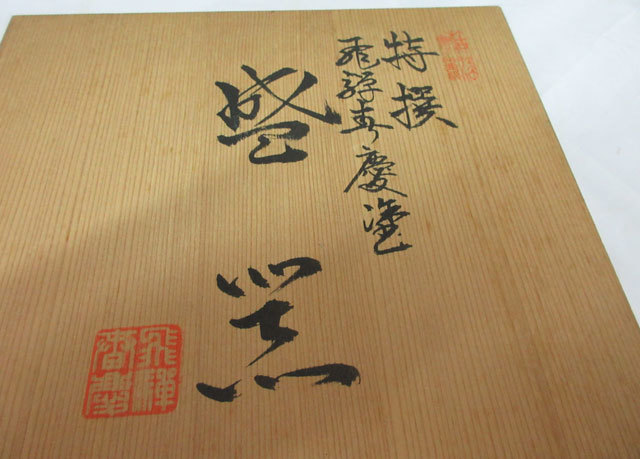 特撰
飛騨春慶塗
盛器
飛騨
春慶